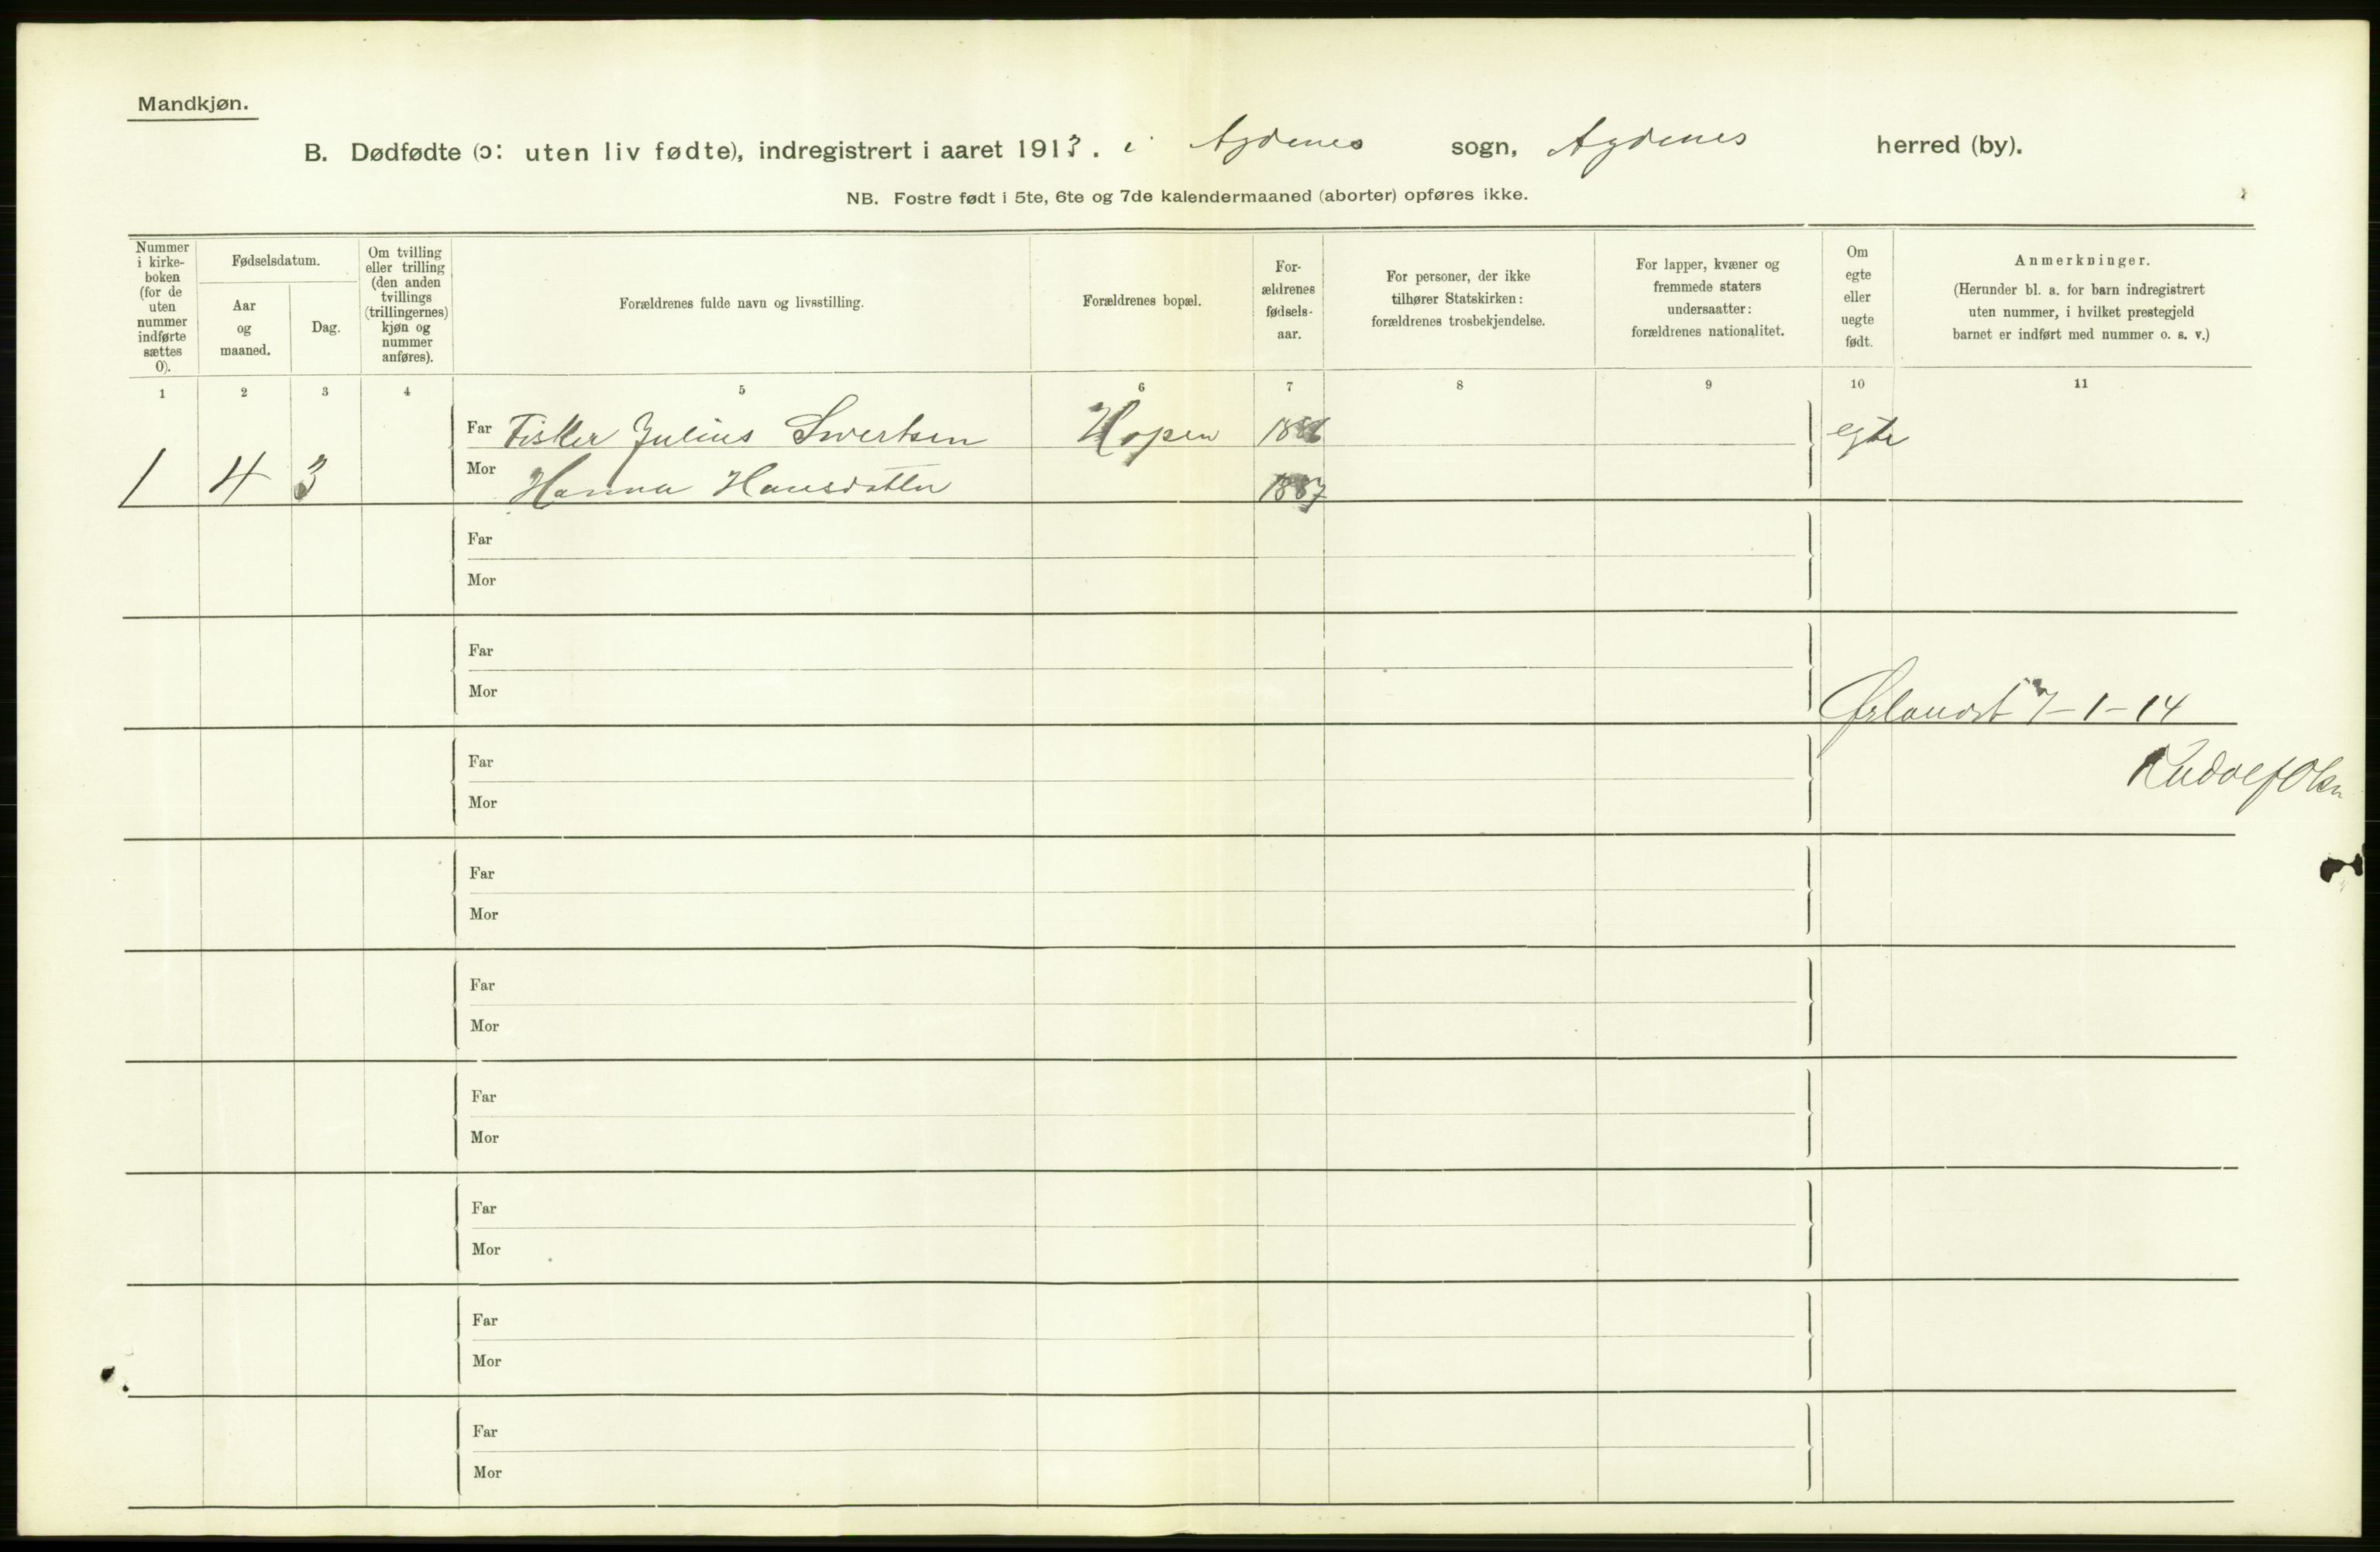 Mandkjøn.
B. Dødfødte (ɔ: uten liv fødte), indregistrert i aaret 1913. i Agdenes sogn, Agdenes herred (by).
NB. Fostre født i 5te, 6te og 7de kalendermaaned (aborter) opføres ikke.
Nummer
i kirke-
boken
(for de
uten
nummer
indførte
sættes
0).
Fødselsdatum.
Aar
og
maaned.
Dag.
Om tvilling
eller trilling
(den anden
tvillings
(trillingernes)
kjøn og
nummer
anføres).
Forældrenes fulde navn og livsstilling.
Forældrenes bopæl.
For-
ældrenes
fødsels-
aar.
For personer, der ikke
tilhører Statskirken:
forældrenes trosbekjendelse.
For lapper, kvæner og
fremmede staters
undersaatter:
forældrenes nationalitet.
Om
egte
eller
uegte
født.
Anmerkninger.
(Herunder bl. a. for barn indregistrert
uten nummer, i hvilket prestegjeld
barnet er indført med nummer o. s. v.)
1 2 3 4 5 6 7 8 9 10 11
Far Fisker Julius Sivertsen Hopen 1886 egte
1 4 3 Mor Hanna Hansdatter 1887
Far
Mor
Far
Mor
Ørlandet 7-1-14
Rudolf Olsen
Far
Mor
Far
Mor
Far
Mor
Far
Mor
Far
Mor
Far
Mor
Far
Mor